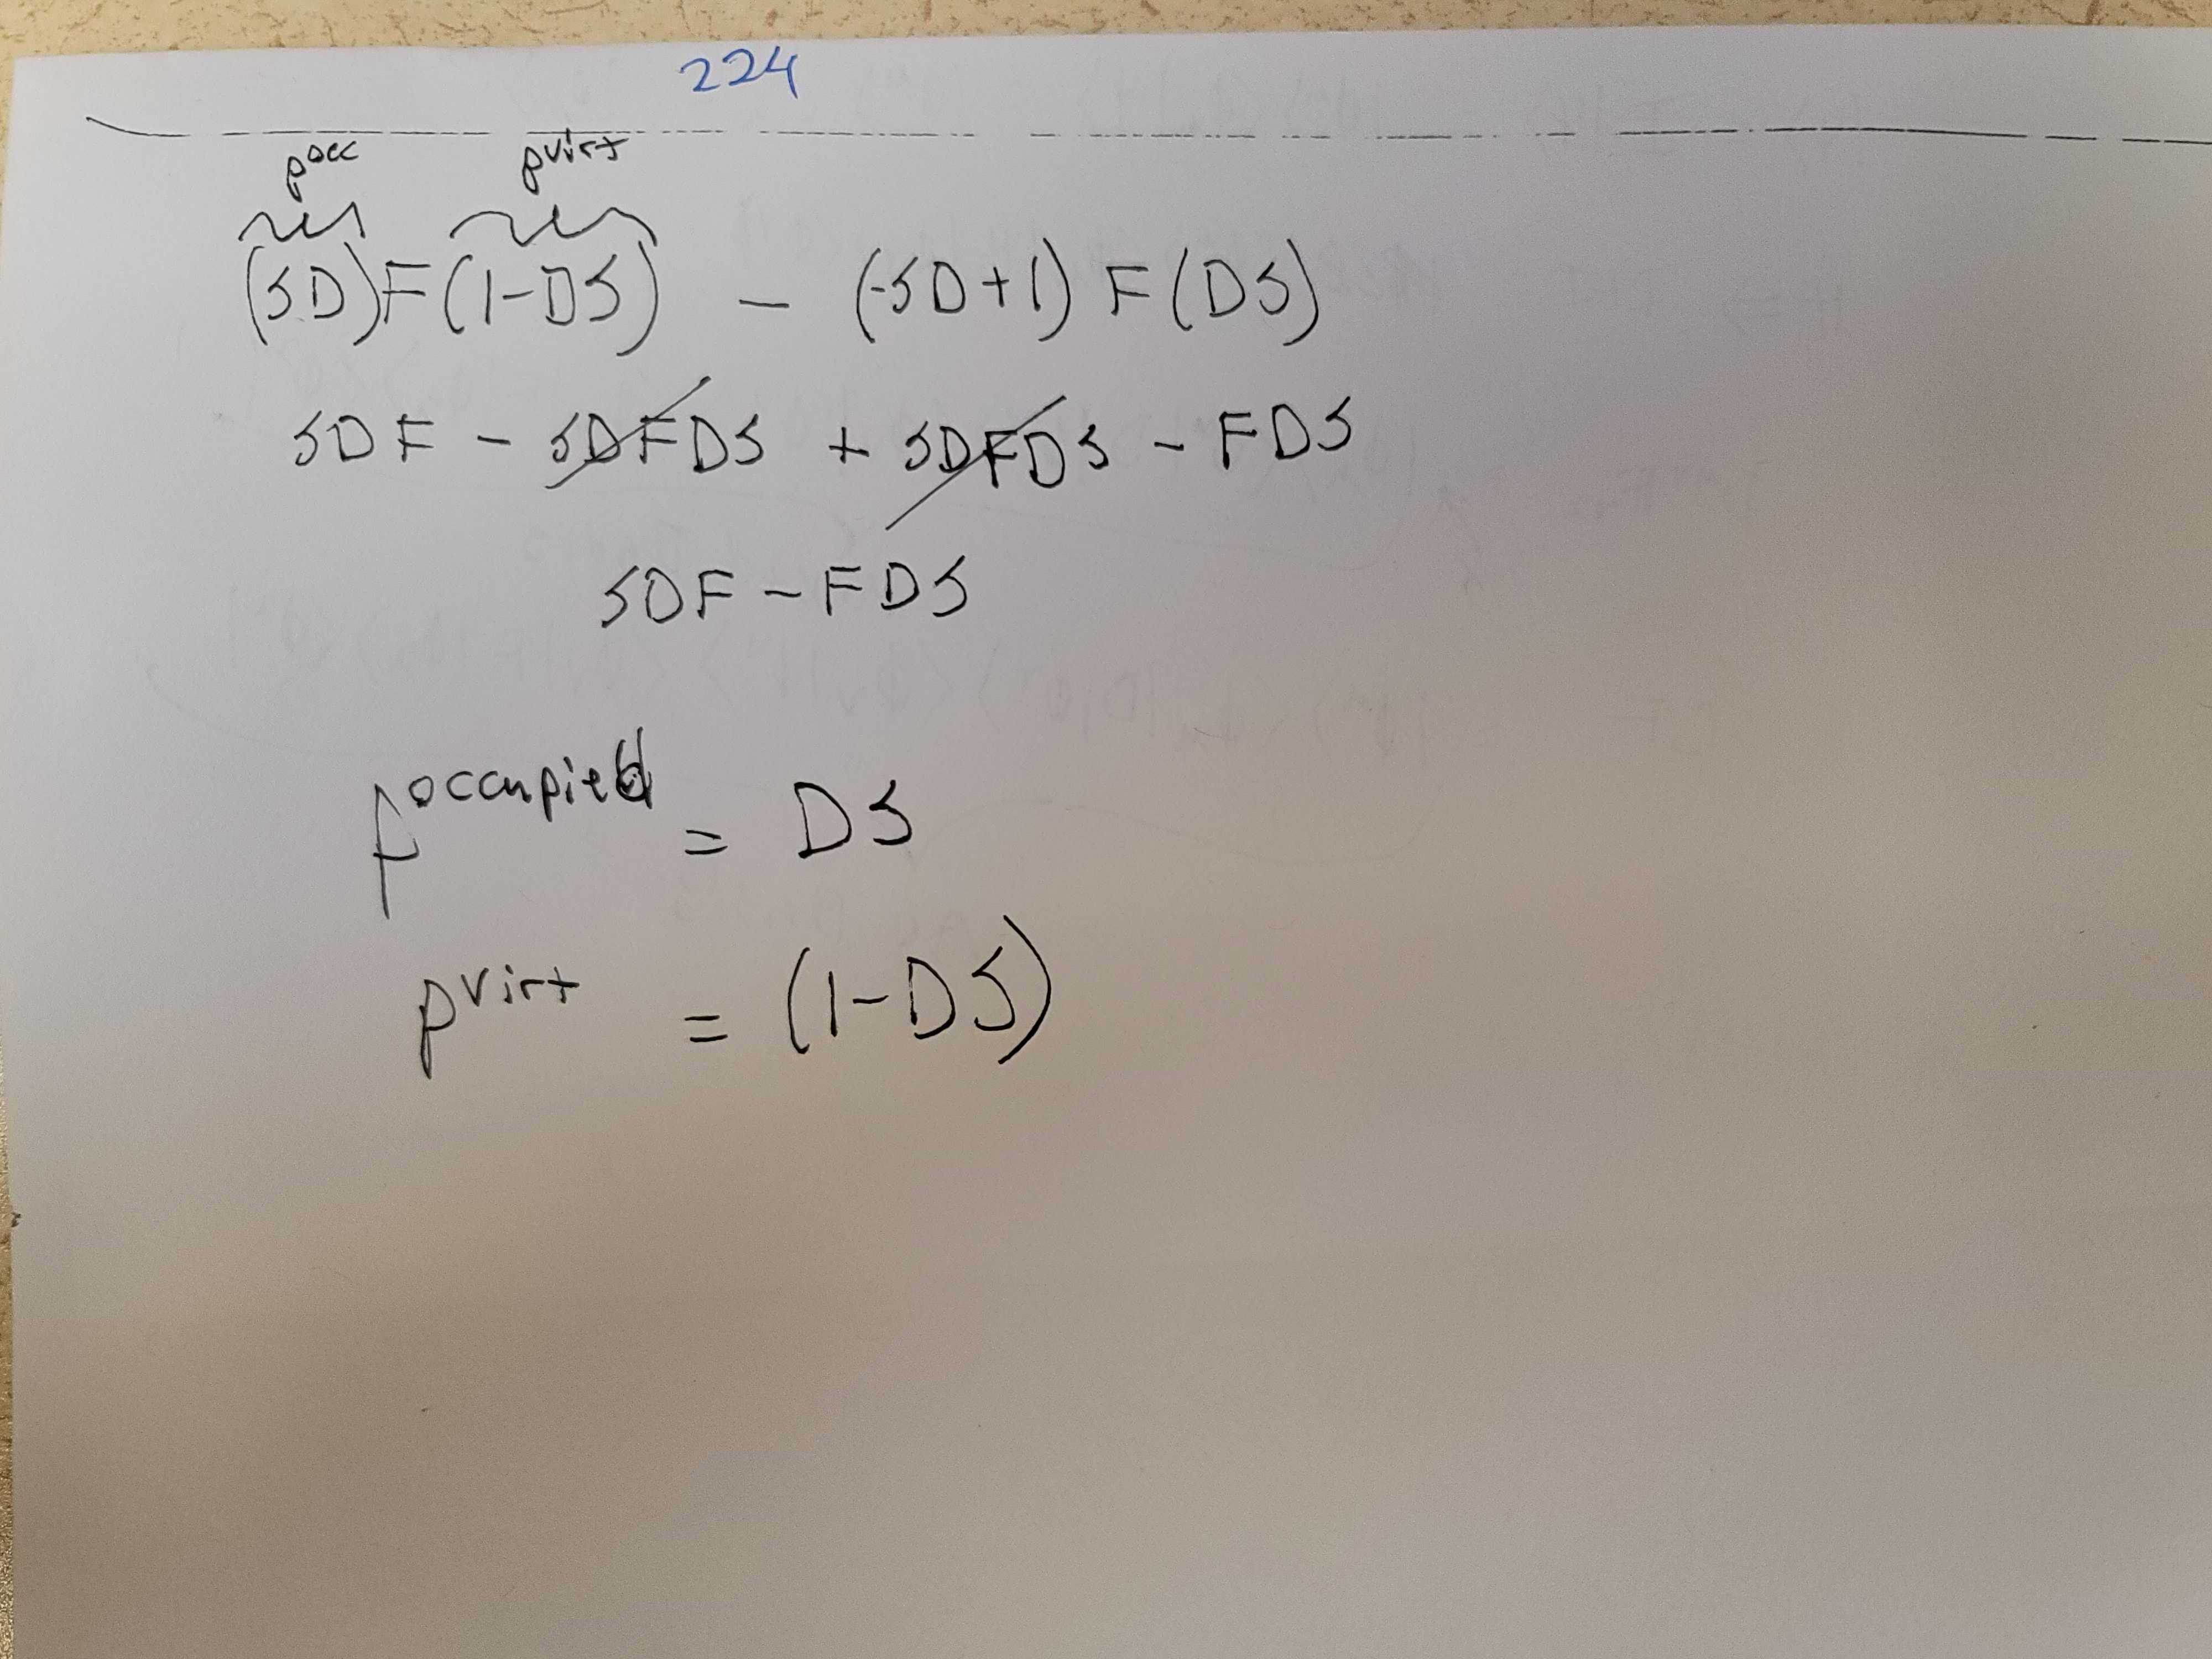 224
pᵒᶜᶜ pᵛⁱʳᵗ
(SD)F(1-DS) - (-SD+1) F(DS)
SDF - SDFDS + SDFDS - FDS
SDF - FDS
pᵒᶜᶜᵘᵖⁱᵉᵈ = DS
pᵛⁱʳᵗ = (1-DS)